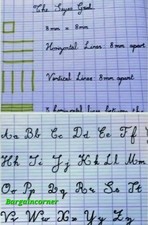 The Seyes Grid
8mm = 8mm
Horizontal Lines 8mm apart
Vertical Lines 8mm apart
3 horizontal lines between the
Aa Bb Cc Dd Ee Ff
Hh Ii Jj Kk Ll Mm
Oo Pp Qq Rr Ss Tt
Vv Ww Xx Yy Zz
Bargaincorner